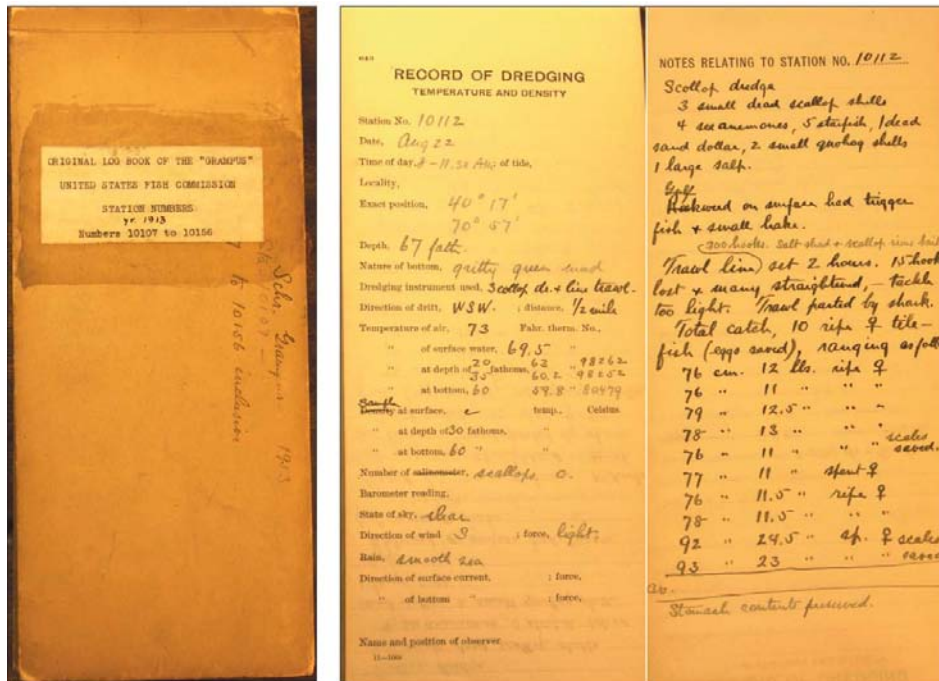 ORIGINAL LOG BOOK OF THE "GRAMPUS"
UNITED STATES FISH COMMISSION
STATION NUMBERS
yr. 1913
Numbers 10107 to 10156
Schr. Grampus 1913
10107 –
to 10156 inclusive
RECORD OF DREDGING
TEMPERATURE AND DENSITY
Station No. 10112
Date, Aug 22
Time of day, 8 – 11.50 AM; of tide,
Locality,
Exact position, 40° 17'
70° 57'
Depth, 67 fath.
Nature of bottom, gritty green mud
Dredging instrument used, Scollop dr. & line trawl.
Direction of drift, WSW. ; distance, 1/2 mile
Temperature of air, 73 Fahr. therm. No.,
" of surface water, 69.5
" at depth of 20 fathoms, 62 " 98262
35 60.2 98252
" at bottom, 60 59.8 " 80479
Sample
Density at surface, temp., Celsius
" at depth of 30 fathoms, "
" at bottom, 60 " "
Number of salinometer, scallops 0.
Barometer reading,
State of sky, clear
Direction of wind S ; force, light.
Rain, smooth sea
Direction of surface current, ; force,
" of bottom " ; force,
Name and position of observer
NOTES RELATING TO STATION NO. 10112
Scollop dredge
3 small dead scallop shells
4 sea anemones, 5 starfish, 1 dead
sand dollar, 2 small quohog shells
1 large salp.
Gulf
weed on surface had trigger
fish & small hake.
200 hooks. Salt shad & scallop rims bait
Trawl line set 2 hours. 15 hook
lost & many straightened, – tackle
too light. Trawl parted by shark.
Total catch, 10 ripe ♀ tile-
fish (eggs saved), ranging as foll
76 cm. 12 lbs. ripe ♀
76 " 11 " " "
79 " 12.5 " " "
78 " 13 " " " scales
76 " 11 " " " saved.
77 " 11 " spent ♀
76 " 11.5 " ripe ♀
78 " 11.5 " "
92 " 24.5 " sp. ♀ scales
93 " 23 " " " saved
Stomach contents preserved.